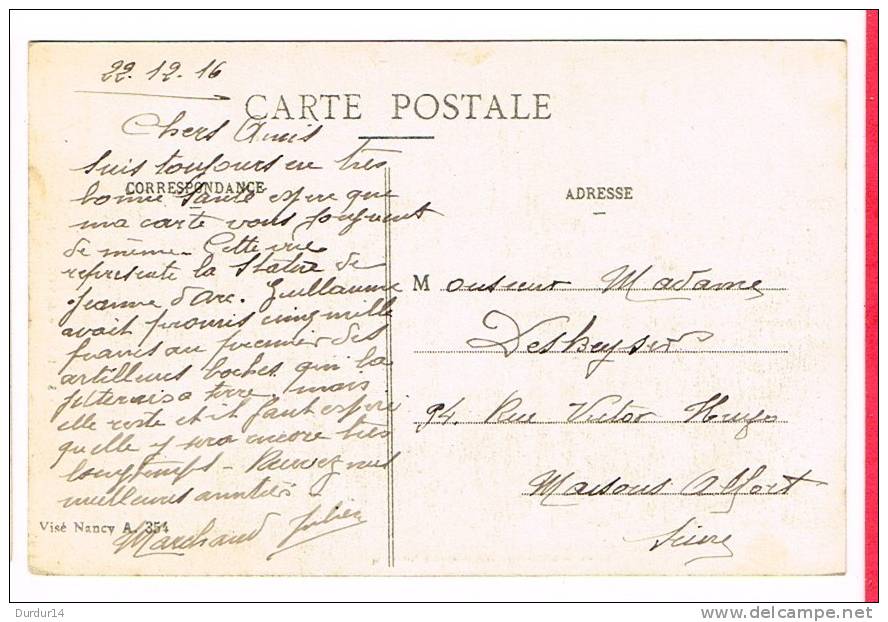 22.12.16
CARTE POSTALE
Chers Amis
Suis toujours en très
CORRESPONDANCE
bonne santé espère que
ma carte vous
de même. Cette vue
représente la Statue de
Jeanne d'Arc. Guillaume
avait promis cinq mille
francs au premier des
artilleurs boches qui la
jetterais a terre, mais
elle reste et il faut esperé
quelle y sera encore très
longtemps - Recevez mes
meilleures amitiés -
Visé Nancy A. 354
Marchand Julien
ADRESSE
Monsieur Madame
94. Rue Victor Hugo
Maisons Alfort
Seine
Durdur14
www.delcampe.net